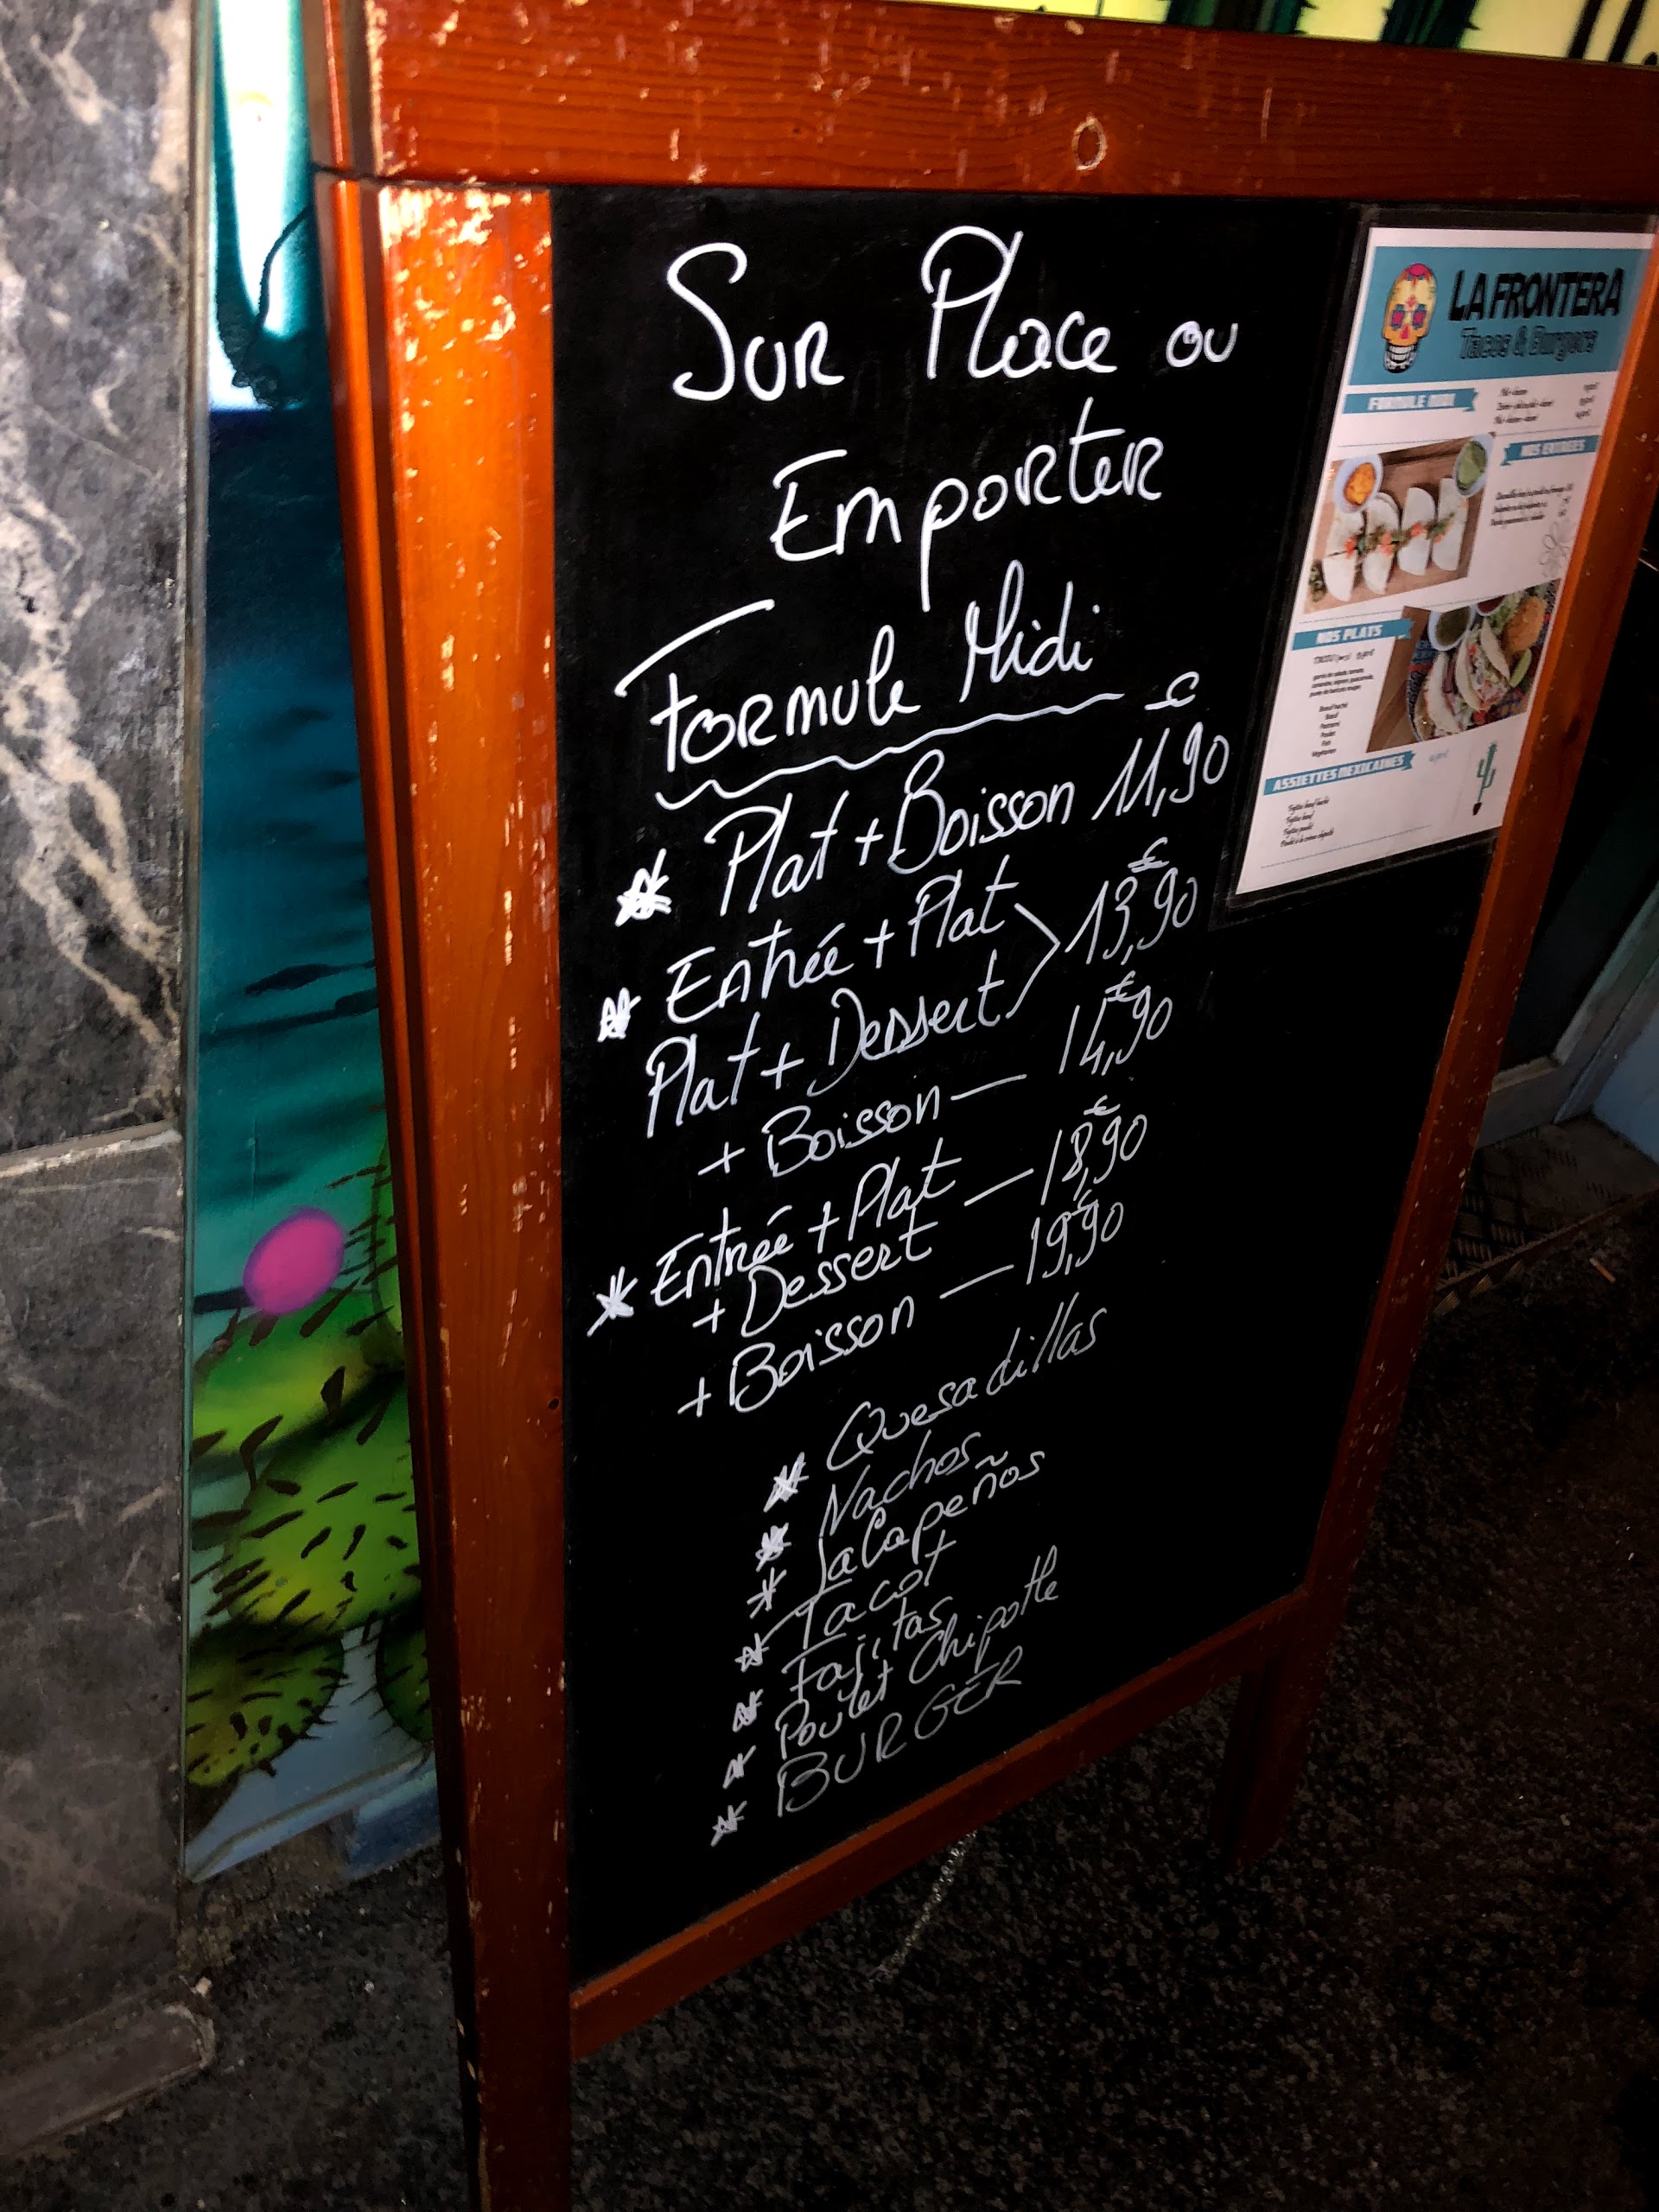 Sur Place ou
Emporter
Formule Midi
Plat + Boisson 11,90 €
Entrée + Plat
Plat + Dessert 13,90 €
+ Boisson — 14,90 €
Entrée + Plat
+ Dessert — 18,90 €
+ Boisson — 19,90 €
Quesadillas
Nachos
Jalapeños
Tacot
Fajitas
Poulet Chipotle
BURGER
LA FRONTERA
Tacos & Burgers
FORMULE MIDI
NOS ENTRÉES
NOS PLATS
ASSIETTES MEXICAINES